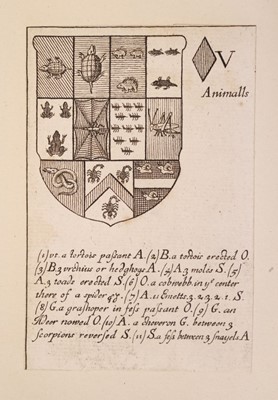 V
Animalls
(1) vt. a tortois passant A. (2) B. a tortois erected O.
(3) B 3 vrchins or hedghogs A. (4) A 3 moles S. (5)
A 3 toads erected S. (6) O. a cobwebb. in yͤ center
there of a spider (7) A. 11 Emetts. 3. 2. 3. 2. 1. S.
(8) G. a grashoper in fess passant O. (9) G. an
Adder nowed O. (10) A. a Cheveron G. between 3
scorpions reversed S. (11) S. a fess between 3 snayels A